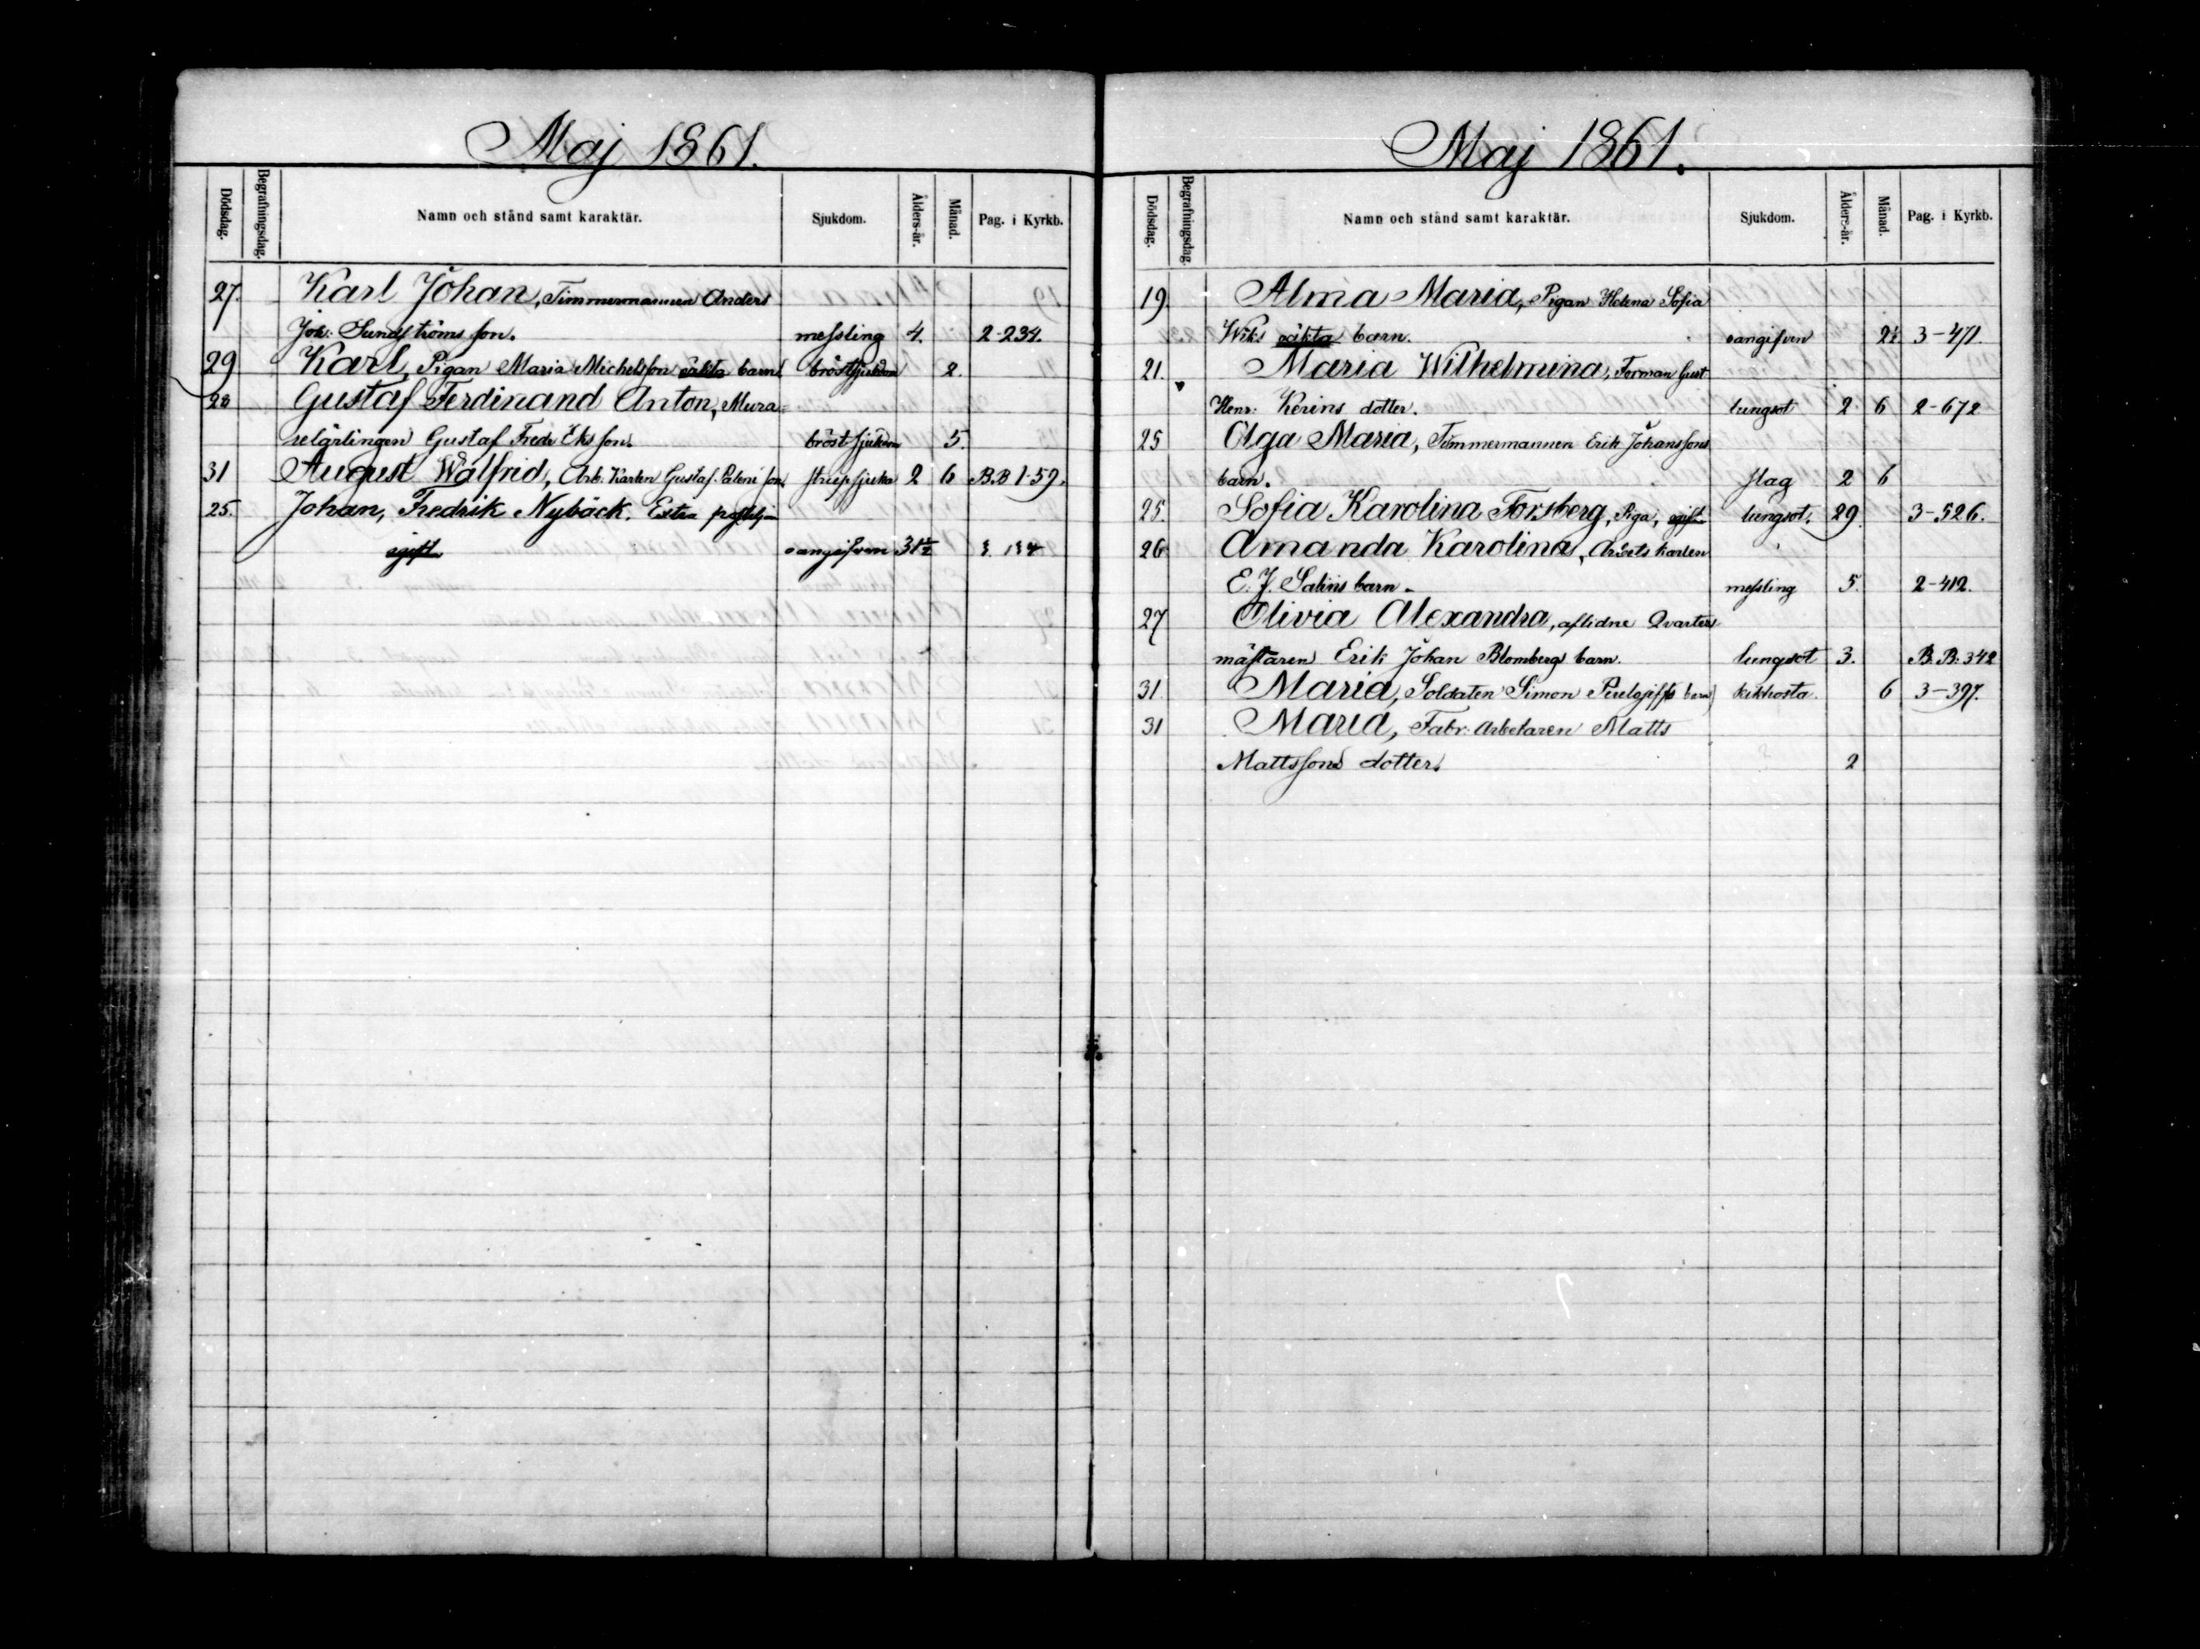 Maj 1861.
Dödsdag. Begrafningsdag. Namn och stånd samt karaktär. Sjukdom. Ålders-år. Månad. Pag. i Kyrkb.
27. Karl Johan, Timmermannen Anders
Joh: Sundströms son. messling 4. 2-234.
29 Karl, Pigan Maria Michelsson oäkta barn bröstsjukdom 2.
28 Gustaf Ferdinand Anton, Mura-
relärlingen Gustaf Fredr Eks son. bröstsjukdom 5.
31 August Walfrid, Arb. Karlen Gustaf Paleni son strupsjuka 2 6 B.B 1-59.
25. Johan, Fredrik Nybäck. Extra
ogift oangifven 31½
Maj 1861.
Dödsdag. Begrafningsdag. Namn och stånd samt karaktär. Sjukdom. Ålders-år. Månad. Pag. i Kyrkb.
19. Alma Maria, Pigan Helena Sofia
Wiks oäkta barn. oangifven 2½ 3-471.
21. Maria Wilhelmina, Forman Gust
Henr: Kerins dotter. lungsot 2 6 2-672
25 Olga Maria, Timmermannen Erik Johanssons
barn. slag 2 6
25. Sofia Karolina Forsberg, Piga, ogift lungsot. 29. 3-526.
26 Amanda Karolina, Arbets karlen
E. J. Salins barn. messling 5. 2-412.
27 Olivia Alexandra, aflidne Qvarters
mästaren Erik Johan Blombergs barn. lungsot 3. B.B: 342
31. Maria, Soldaten Simon barn kikhosta. 6 3-397.
31 Maria, Fabr. Arbetaren Matts
Mattssons dotter. 2